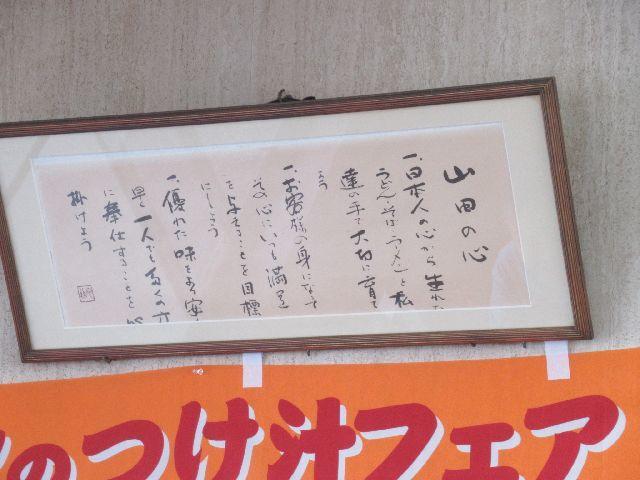 山田の心
一、日本人の心から生れた
うどん、そば、ラーメンを私
達の手で大切に育て
よう
一、お客様の身になって
その心にいつも満足
を与えることを目標
にしよう
一、優れた味をより安く
早く一人でも多くの方
に奉仕することを心
掛けよう
のつけ汁フェア